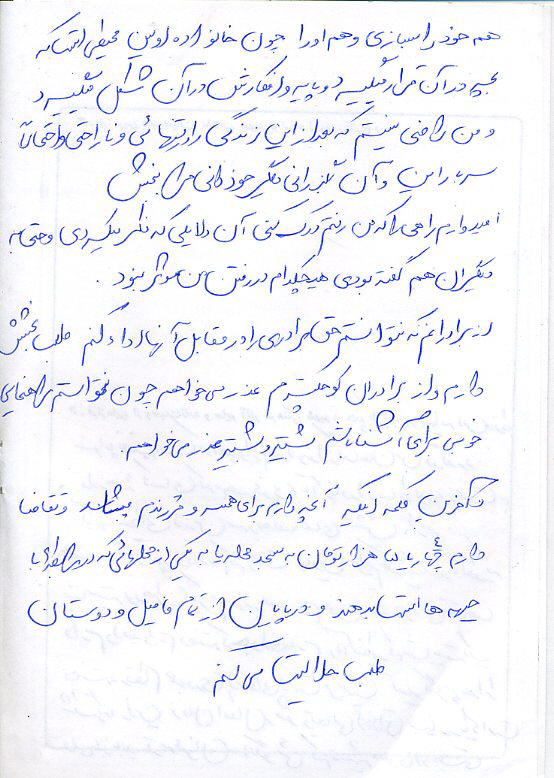 هم خود را بسازی و هم او را چون خانواده اولین محیطی است که
بچه در آن قرار میگیرد و پایه و افکارش در آن شکل میگیرد
و من راضی نیستم که بعد از این زندگی را در تنهائی و ناراحتی
سر و این و آن
امیدوارم راهی که من رفتم درک کنی آن دلایلی که فکر میکردی و حتی به
دیگران هم گفته بودی هیچکدام در رفتن من موثر نبود.
از برادرانم که نتوانستم حق برادری را در مقابل آنها اداء کنم طلب بخشش
دارم و از برادران کوچکترم عذر می‌خواهم چون نتوانستم راهنمایی
خوبی برای آنها باشم بیشتر و بیشتر عذر می‌خواهم.
آخرین کلمه اینکه آنچه دارم برای همسر و فرزندم میباشد و تقاضا
دارم چهار یا ۵ هزار تومان به مسجد محله یا به یکی از محلهائی که در رابطه با
جبهه ها است بدهند و در پایان از تمام فامیل و دوستان
طلب حلالیت می کنم